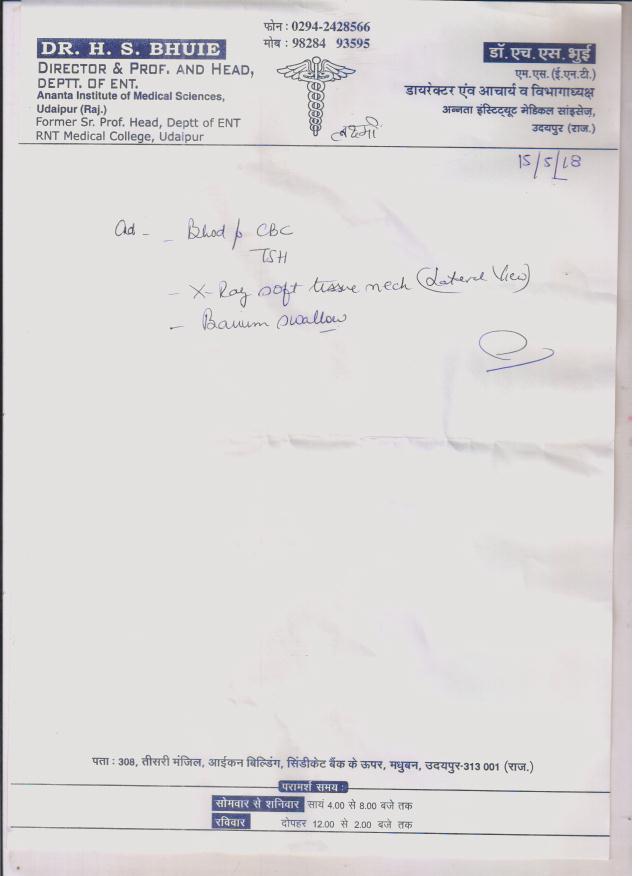 फोन : 0294-2428566
मोब : 98284 93595
DR. H. S. BHUIE
DIRECTOR & PROF. AND HEAD,
DEPTT. OF ENT.
Ananta Institute of Medical Sciences,
Udaipur (Raj.)
Former Sr. Prof. Head, Deptt of ENT
RNT Medical College, Udaipur
डॉ. एच. एस. भुई
एम.एस. (ई.एन.टी.)
डायरेक्टर एंव आचार्य व विभागाध्यक्ष
अनन्ता इंस्टिट्यूट मेडिकल सांइसेज़,
उदयपुर (राज.)
लक्ष्मी
15/5/18
Ad - - Blood f CBC
TSH
- X-Ray soft tissue neck (Lateral View)
- Barium swallow
पता : 308, तीसरी मंजिल, आईकन बिल्डिंग, सिंडीकेट बैंक के ऊपर, मधुबन, उदयपुर-313 001 (राज.)
परामर्श समय :
सोमवार से शनिवार सायं 4.00 से 8.00 बजे तक
रविवार दोपहर 12.00 से 2.00 बजे तक